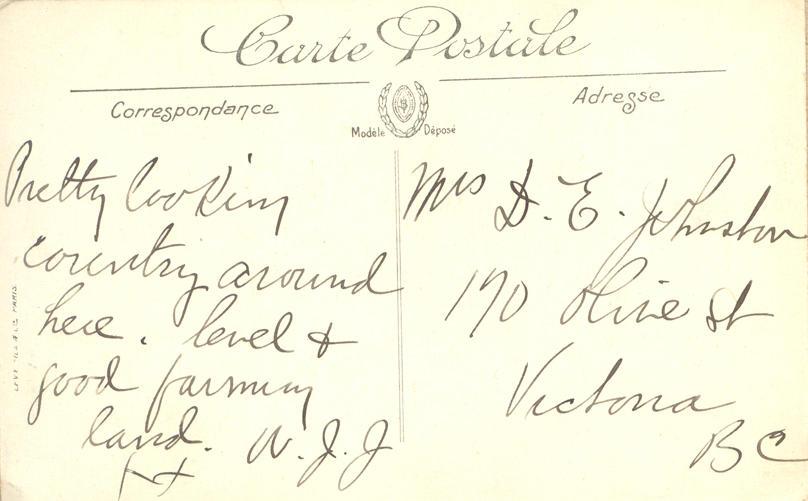 Carte Postale
Correspondance
Adresse
Modèle Déposé
Pretty looking
country around
here. level &
good farming
land. W. J. J
Mrs D. E. Johnston
170 Olive St
Victoria
BC
PARIS